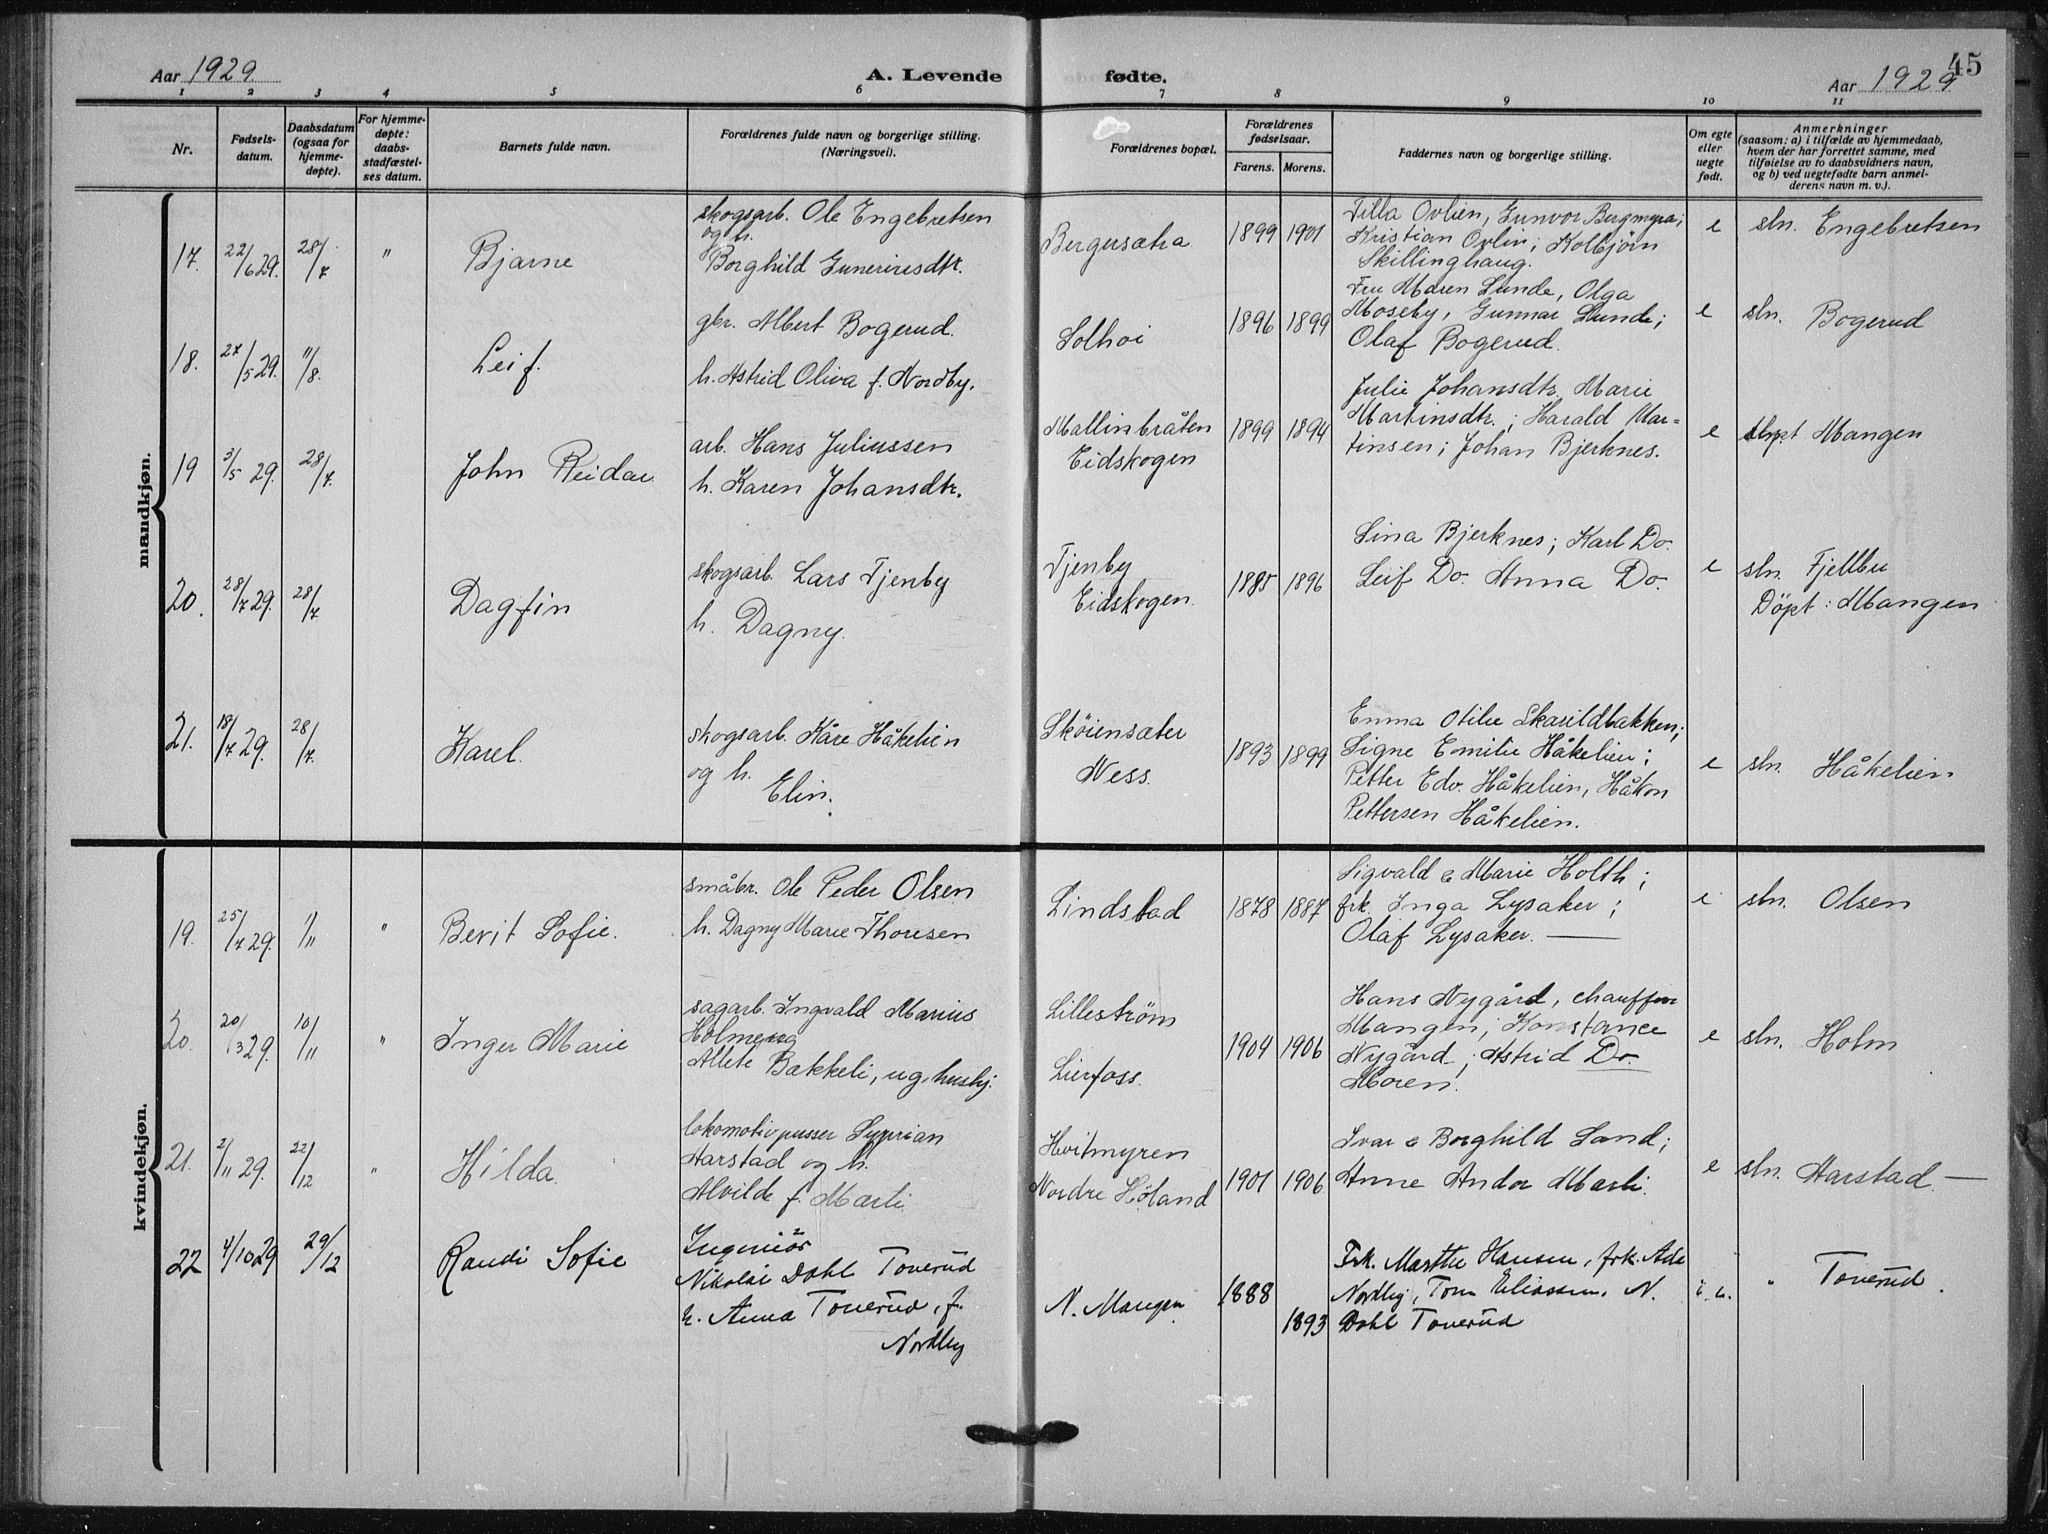 45
Aar 1929. A. Levende fødte. Aar 1929
1 2 3 4 5 6 7 8 9 10 11
Nr.
Fødsels-
datum.
Daabsdatum
(ogsaa for
hjemme-
døpte).
For hjemme-
døpte:
daabs-
stadfæstel-
ses datum.
Barnets fulde navn.
Forældrenes fulde navn og borgerlige stilling.
(Næringsvei).
Forældrenes bopæl.
Forældrenes
fødselsaar.
Farens. Morens.
Faddernes navn og borgerlige stilling.
Om egte
eller
uegte
født.
Anmerkninger
(saasom: a) i tilfælde av hjemmedaab,
hvem der har forrettet samme, med
tilføielse av to daabsvidners navn,
og b) ved uegtefødte barn anmel-
derens navn m. v.).
mandkjøn.
17. 22/6 29. 28/7 " Bjarne
skogsarb. Ole Engebretsen
og h.
Borghild
Bergersætra 1899 1901
Tilla Ovlien, Gunvor Bergmyra;
Kristian Ovlin; Kolbjørn
Skillinghaug.
e sln. Engebretsen
18. 27/5 29. 11/8. Leif.
gbr. Albert Bogerud.
h. Astrid Oliva f. Nordby.
Solhoi 1896 1899
Fru Maren Lunde, Olga
Moseby, Gunnar Lunde;
Olaf Bogerud.
e sln. Bogerud
19 3/5 29. 28/7. John Reidar
arb. Hans Juliussen
h. Karen Johansdtr.
Mallinbråten
Eidskogen
1899 1894
Julie Johansdtr. Marie
Martinsdtr.; Harald Mar-
tinsen; Johan Bjerknes.
e Mangen
20. 28/7 29. 28/7 Dagfin
skogsarb. Lars Tjenby
h. Dagny.
Tjenby
Eidskogen.
1885 1896
Lina Bjerknes; Karl Do.
Leif Do. Anna Do.
e sln. Fjellbu
Döpt: Mangen
21. 18/7 29. 28/7. Karel.
skogsarb. Kåre Håkelien
og h.
Elin.
Sköiensæter
Ness.
1893 1899
Emma Otilie Skarildbakken;
Signe Emilie Håkelien;
Petter Edv. Håkelien, Håkon
Pettersen Håkelien.
e sln. Håkelien
kvindekjøn.
19. 25/7 29. 1/11 " Berit Sofie.
småbr. Ole Peder Olsen
h. Dagny Marie Thoresen
Lindstad 1878 1887
Sigvald & Marie Holth;
frk. Inga Lysaker;
Olaf Lysaker. —
e sln. Olsen
20. 20/3 29. 10/11 " Inger Marie
sagarb. Ingvald Marius
Holm og
Allete Bakkeli, ug. hushj.
Lilleström
Lierfoss.
1904 1906
Hans Nygård, chauffør
Mangen; Konstance
Nygård; Astrid Do.
Moren.
e sln. Holm
21. 2/11 29. 22/12 " Hilda.
lokomotivpusser Syprian
Aarstad og h.
Alvilde f. Marli.
Hvitmyren
Nordre Höland
1901 1906
Ivar & Borghild Sand;
Anne Andor Marli.
e sln. Aarstad —
22 4/10 29 29/12 Randi Sofie
Ingeniör
Nikolai Dahl Toverud
h. Anna Toverud, f.
Nordby
N. Mangen 1888
1893
Frk. Marthe Hansen, frk. Ada
Nordby, Tom Eliassen, N.
Dahl Toverud
" Toverud.